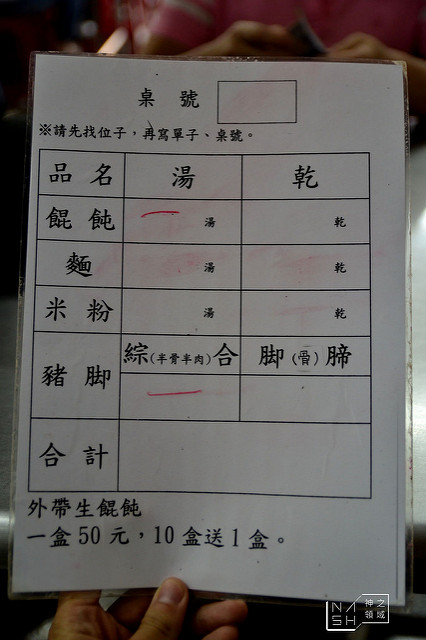 桌 號
※請先找位子，再寫單子、桌號。
品 名 湯 乾
餛 飩 一 湯 乾
麵 湯 乾
米 粉 湯 乾
豬 脚 綜(半骨半肉)合 脚(骨)蹄
一
合 計
外帶生餛飩
一盒50元，10盒送1盒。
NASH 神之領域